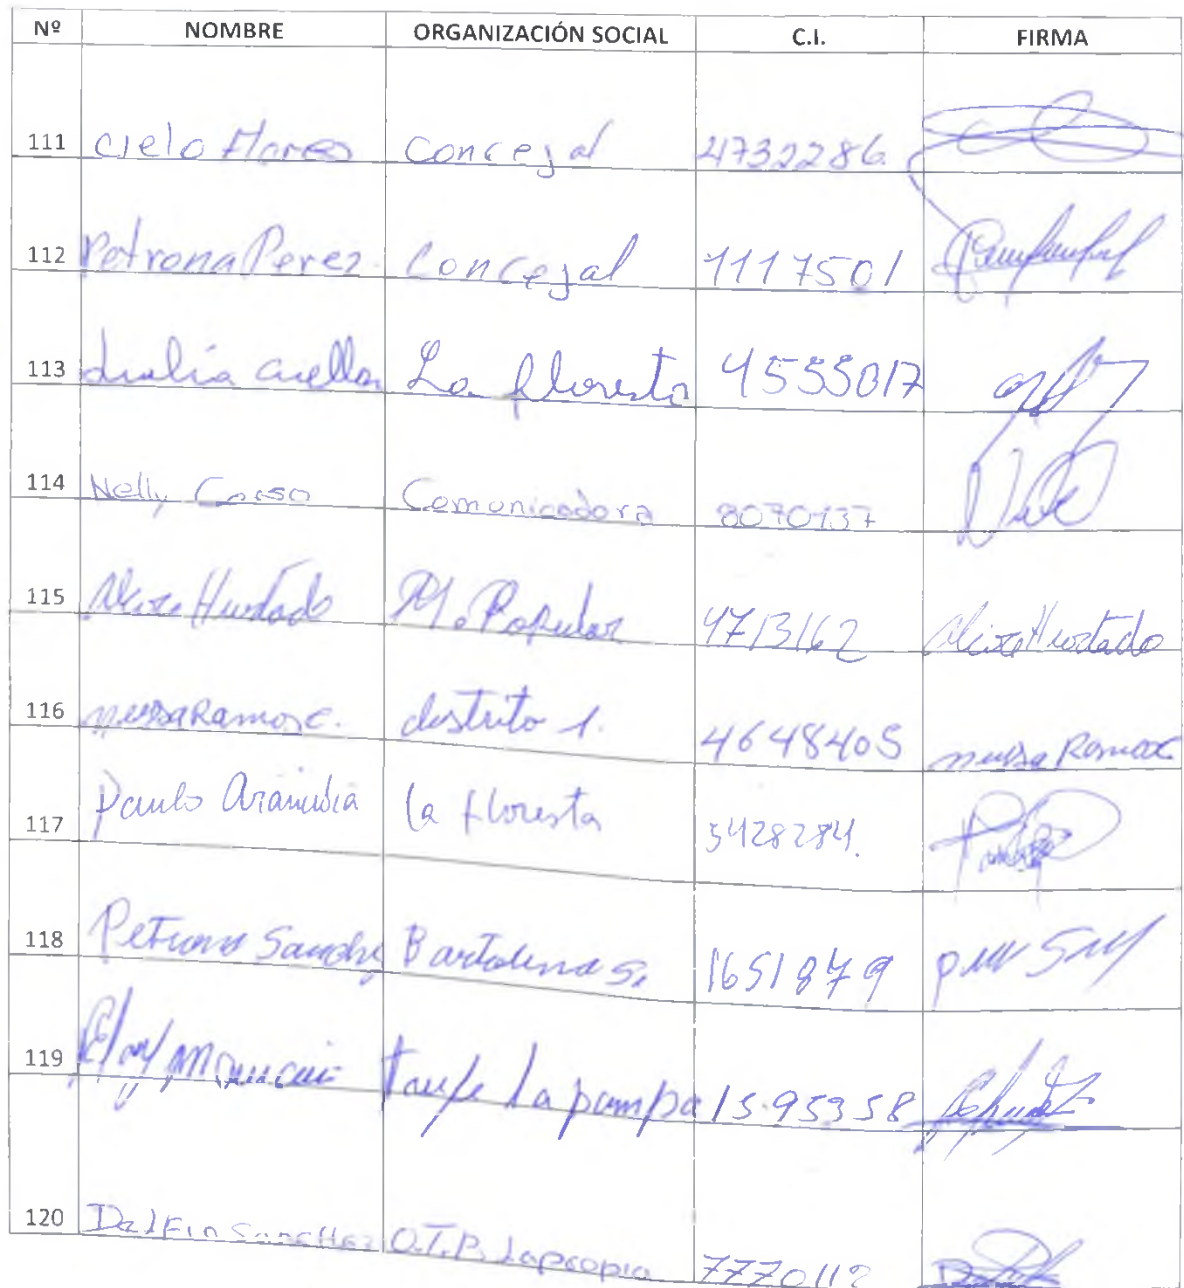 Nº NOMBRE ORGANIZACIÓN SOCIAL C.I. FIRMA
111 Cielo Flores Concejal 4732286.
112 Petrona Perez. Concejal 1117501
113 Cuellar La floresta 4555017
114 Nelly Corso Comunicadora 8070137
115 Hurtado M. Popular 4713162 Hurtado
116 Ramos C. distrito 1. 4648405
117 Paulo la floresta 5428284.
118 Petrona Sanchz Bartolina S. 1651879
119 La pampa 1595358
120 Delfin Sanchez O.T.B. Lapropia 7770112